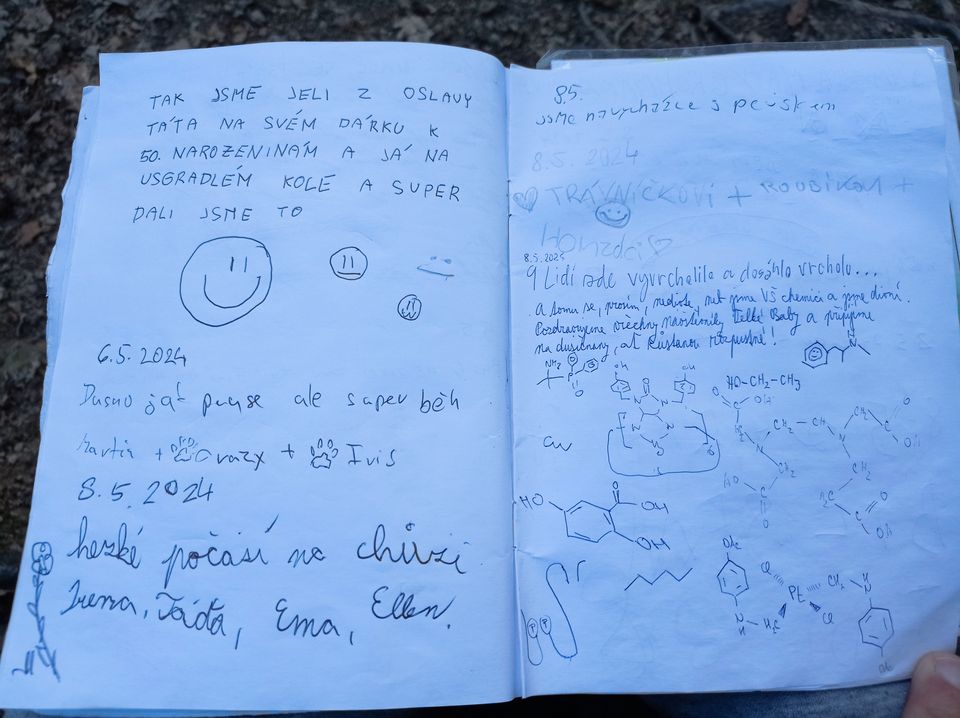 TAK JSME JELI Z OSLAVY
TÁTA NA SVÉM DÁRKU K
50. NAROZENINÁM A JÁ NA
USGRADLÉM KOLE A SUPER
DALI JSME TO
6.5.2024
Dusno jak ale super běh
Martin + Crazy + Ivis
8.5.2024
hezké počasí na chůzi
Irena, Táďa, Ema, Ellen.
8.5.
jsme na vycházce s pejskem
8.5.2024
TRÁVNÍČKOVI + ROUBÍKOVI +
8.5.2024
9 Lidí zde vyvrcholilo a dosáhlo vrcholu...
A tomu se, prosím, nedivte, neb jsme VŠ chemici a jsme divní.
Pozdravujeme všechny návštěvníky Velké Baby a připijme
na dusičnany, ať zůstanou rozpustné!
NH2
OH
OH
HO-CH2-CH3
Cu
HO
O
OH
OH
Cl
Pt
CH2
H
N
H2C
Cl